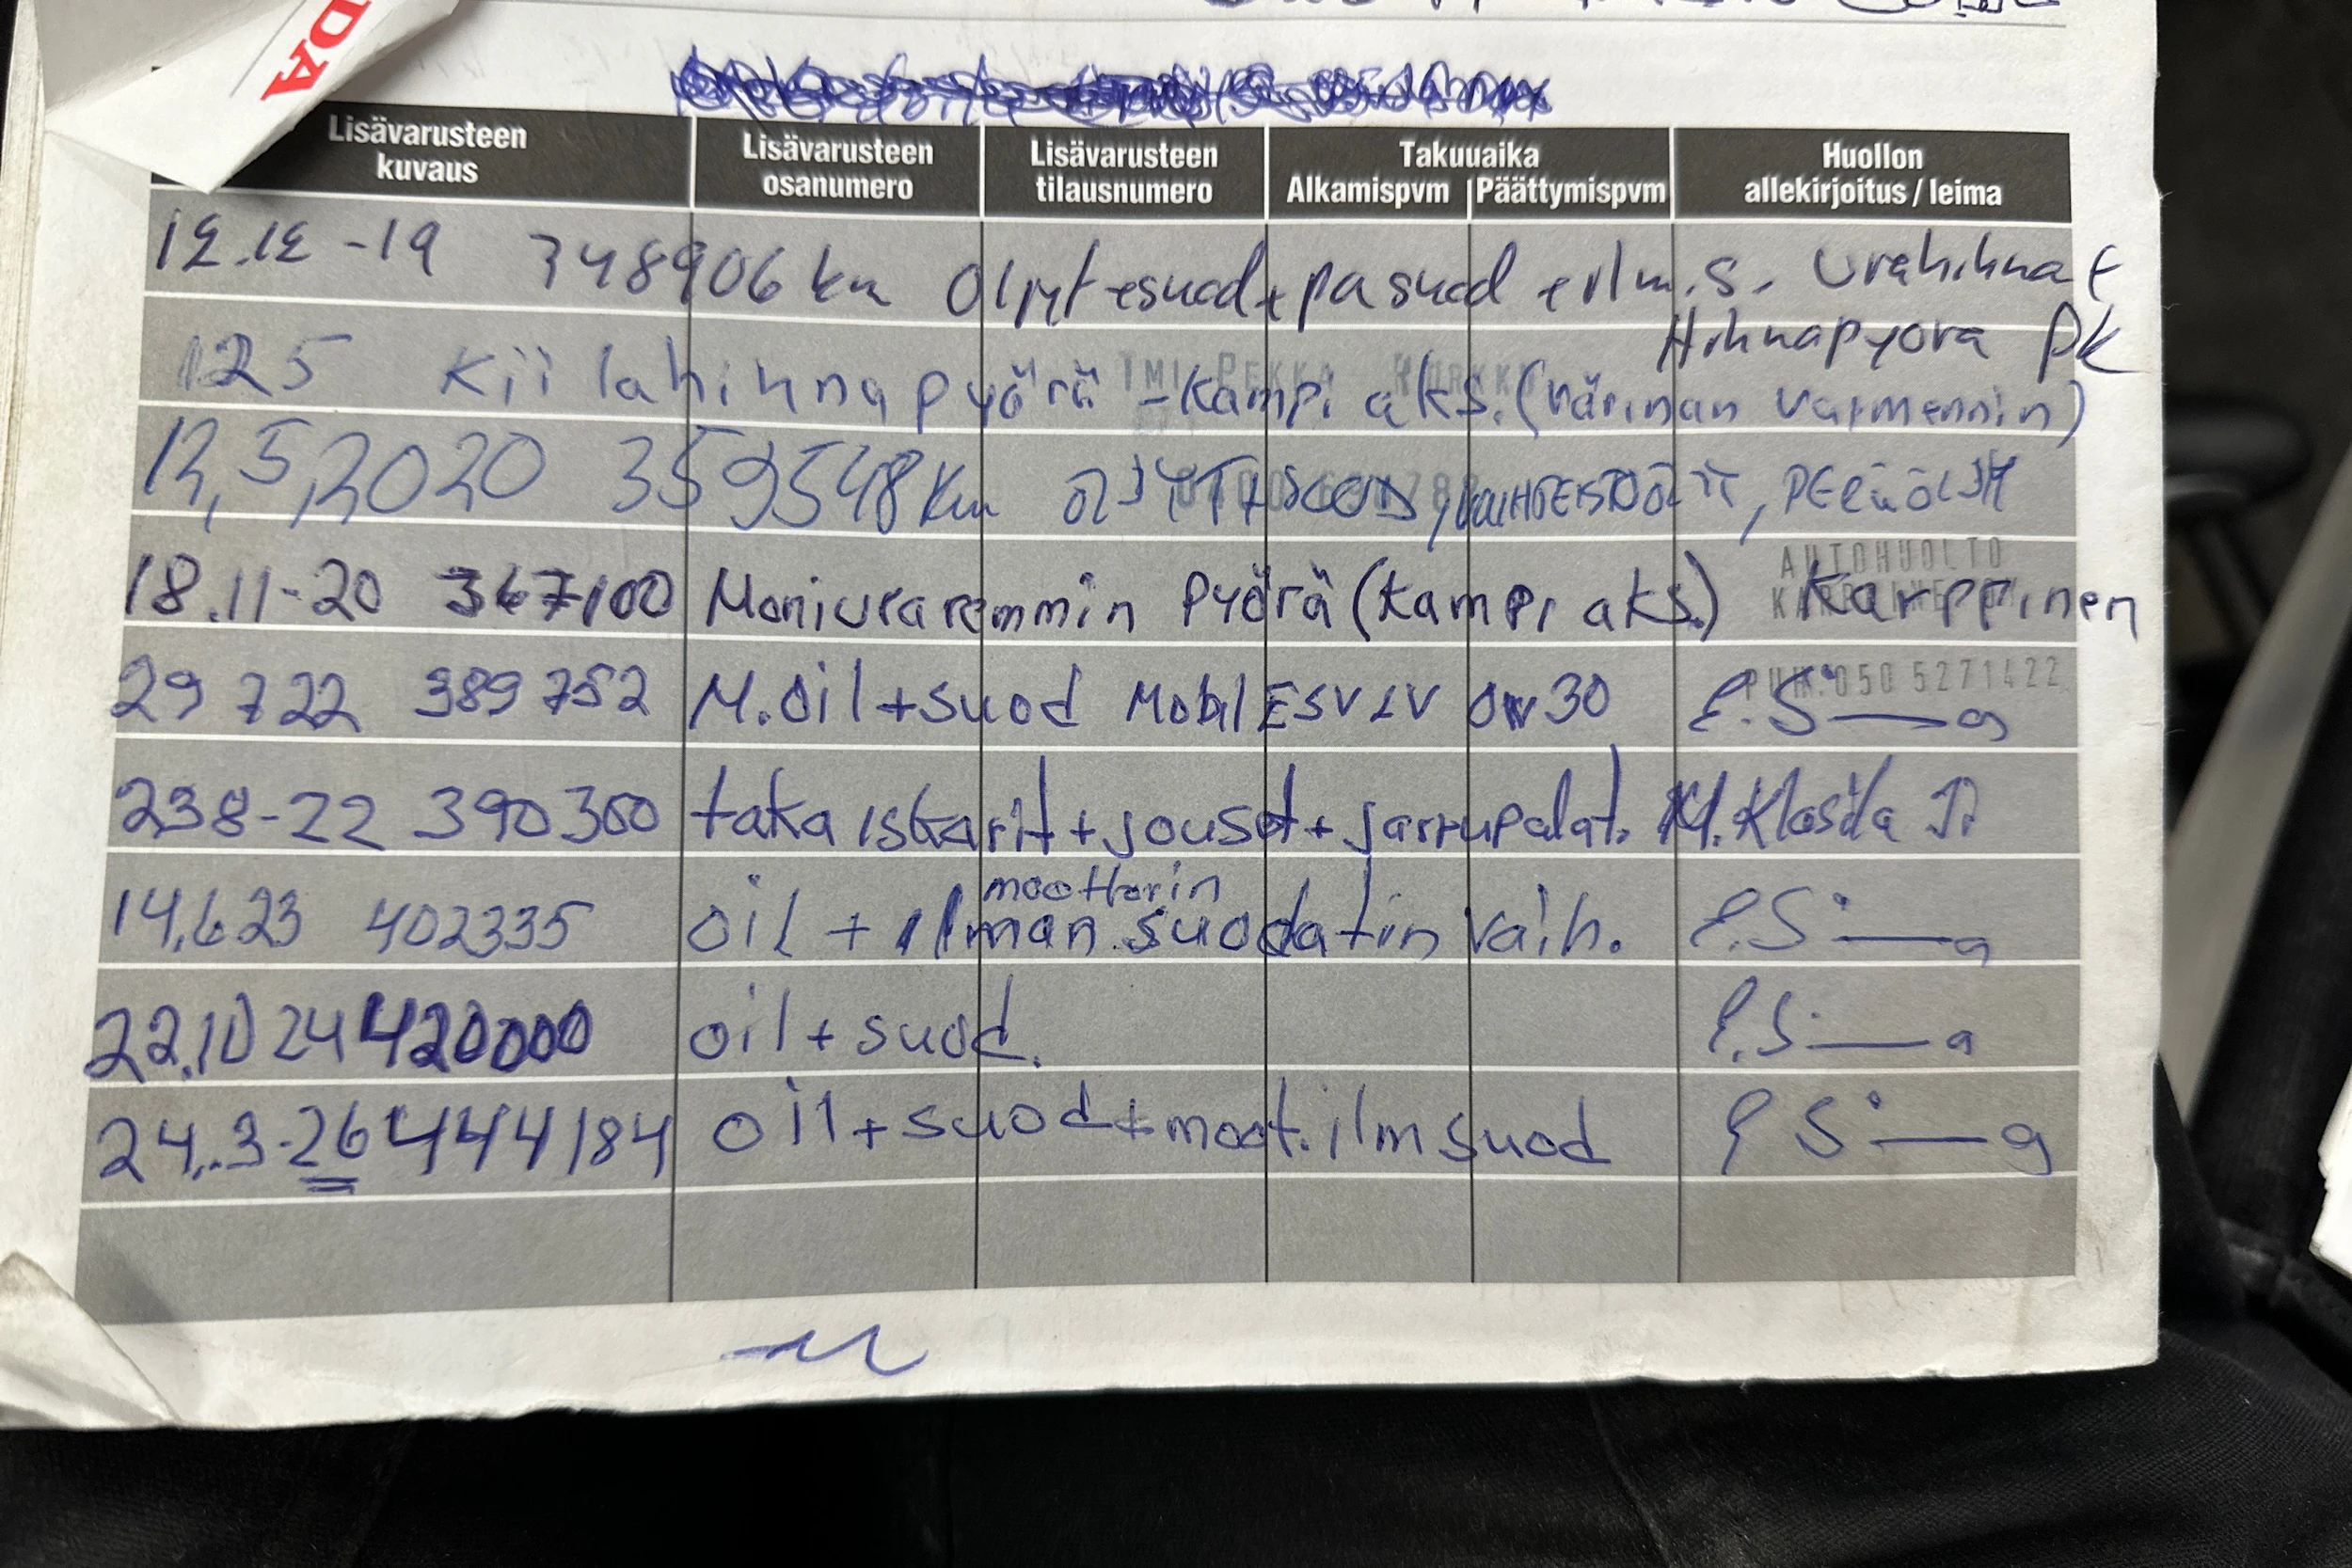 DA
Lisävarusteen kuvaus
Lisävarusteen osanumero
Lisävarusteen tilausnumero
Takuuaika
Alkamispvm Päättymispvm
Huollon allekirjoitus / leima
12.12 -19 348906 km Öljyt + suod + pa suod + ilm.s. Urahihnat
Hihnapyörä PK
125 Kiilahihnapyörä - Kampi aks. (värinän vaimennin)
IMI PEKKA
12,5,2020 359548 Km ÖLJYT+SUOD, VAIHDEISTOÖLJYT, PERÄÖLJYT
18.11-20 367100 Moniuraremmin Pyörä (Kampi aks.) Karppinen
AUTOHUOLTO
29 7 22 389 752 M.oil+suod Mobil ESV LV 0w30 E.S——a
PUH. 050 5271422
238-22 390300 taka iskarit + jouset + jarrupalat.
14.6.23 402335 oil + moottorin ilman.suodatin vaih. E.S——a
22.10 24 420000 oil + suod. E.S——a
24.3-26 444184 oil+suod+moot.ilmsuod E S——a